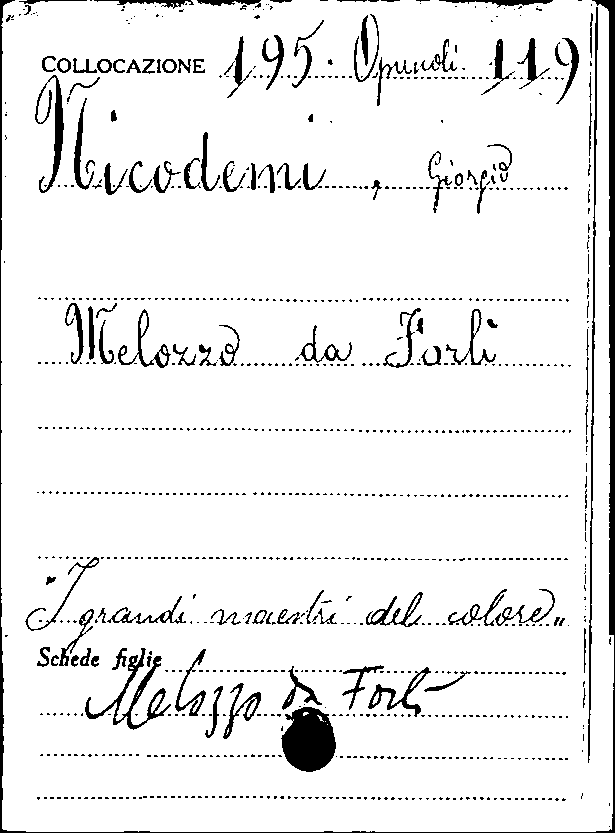 COLLOCAZIONE 195. Opuscoli 119
Nicodemi, Giorgio
Melozzo da Forlì
"I grandi maestri del colore„
Schede figlie
Melozzo da Forlì